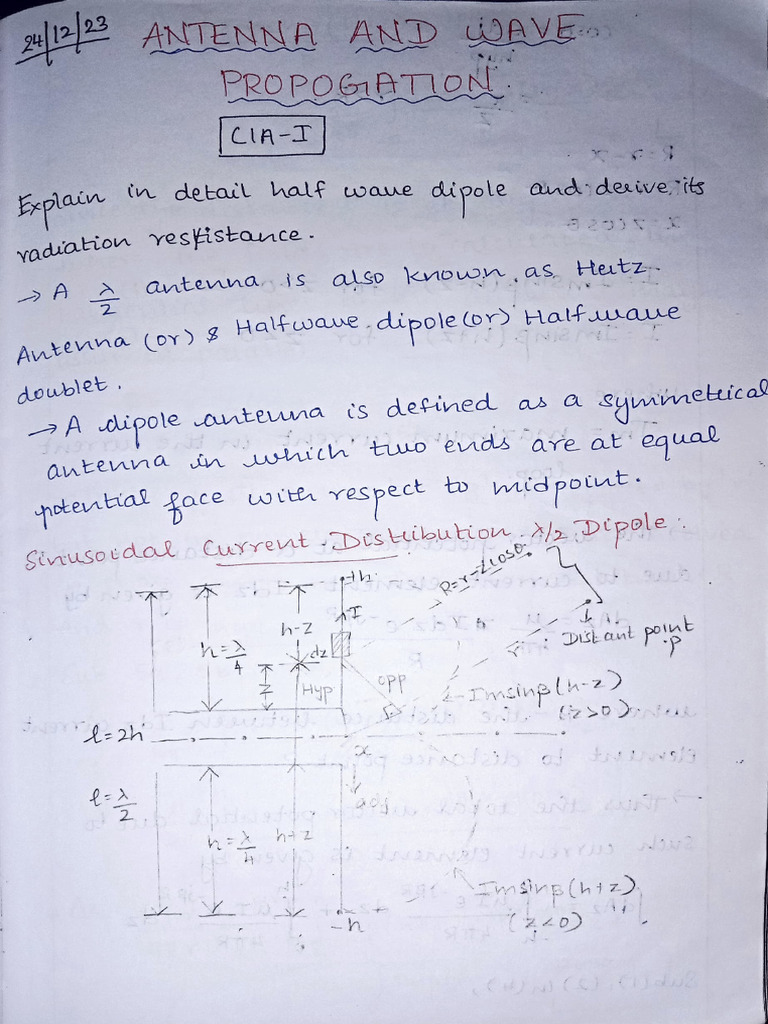 24/12/23
ANTENNA AND WAVE
PROPOGATION.
CIA-I
Explain in detail half wave dipole and derive its
radiation resistance.
→ A λ/2 antenna is also known as Hertz
Antenna (or) & Halfwave dipole (or) Halfwave
doublet.
→ A dipole antenna is defined as a symmetrical
antenna in which two ends are at equal
potential face with respect to midpoint.
Sinusoidal Current Distribution λ/2 Dipole:
+h
R=r-zcosθ
I
h-z
dz
Distant point
P
h=λ/4
z
Hyp
opp
Imsinβ(h-z)
(z>0)
l=2h
x
adj
l=λ/2
h=λ/4
h+z
Imsinβ(h+z)
(z<0)
-h